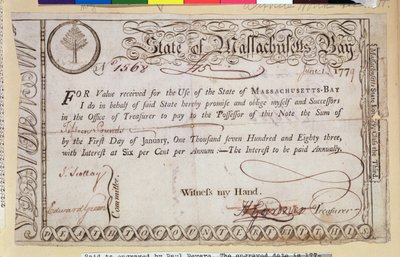 State of Massachusetts Bay
No 1568 £15 June 1. 1777
FOR Value received for the Use of the State of MASSACHUSETTS-BAY
I do in behalf of said State hereby promise and oblige myself and Successors
in the Office of Treasurer to pay to the Possessor of this Note the Sum of
Fifteen Pounds
by the First Day of January, One Thousand seven Hundred and Eighty three,
with Interest at Six per Cent per Annum:—The Interest to be paid Annually.
Witness my Hand.
Committee.
H Gardner Treasurer
Said to engraved by Paul Revere. The engraved date is 177